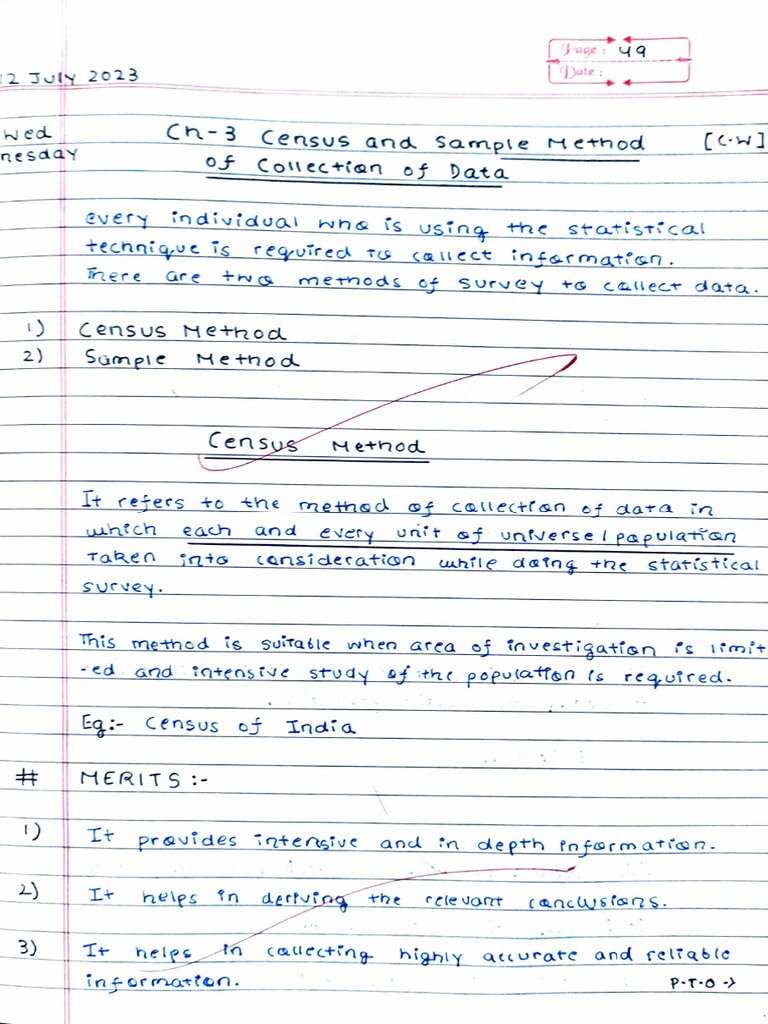 Page: 49
Date:
12 July 2023
Wed
nesday
Ch-3 Census and Sample Method [C.W]
of Collection of Data
every individual who is using the statistical
technique is required to collect information.
There are two methods of survey to collect data.
1) Census Method
2) Sample Method
Census Method
It refers to the method of collection of data in
which each and every unit of universe/population
Taken into consideration while doing the statistical
survey.
This method is suitable when area of investigation is limit
-ed and intensive study of the population is required.
Eg:- Census of India
# MERITS :-
1) It provides intensive and in depth information.
2) It helps in deriving the relevant conclusions.
3) It helps in collecting highly accurate and reliable
information.
P.T.O →